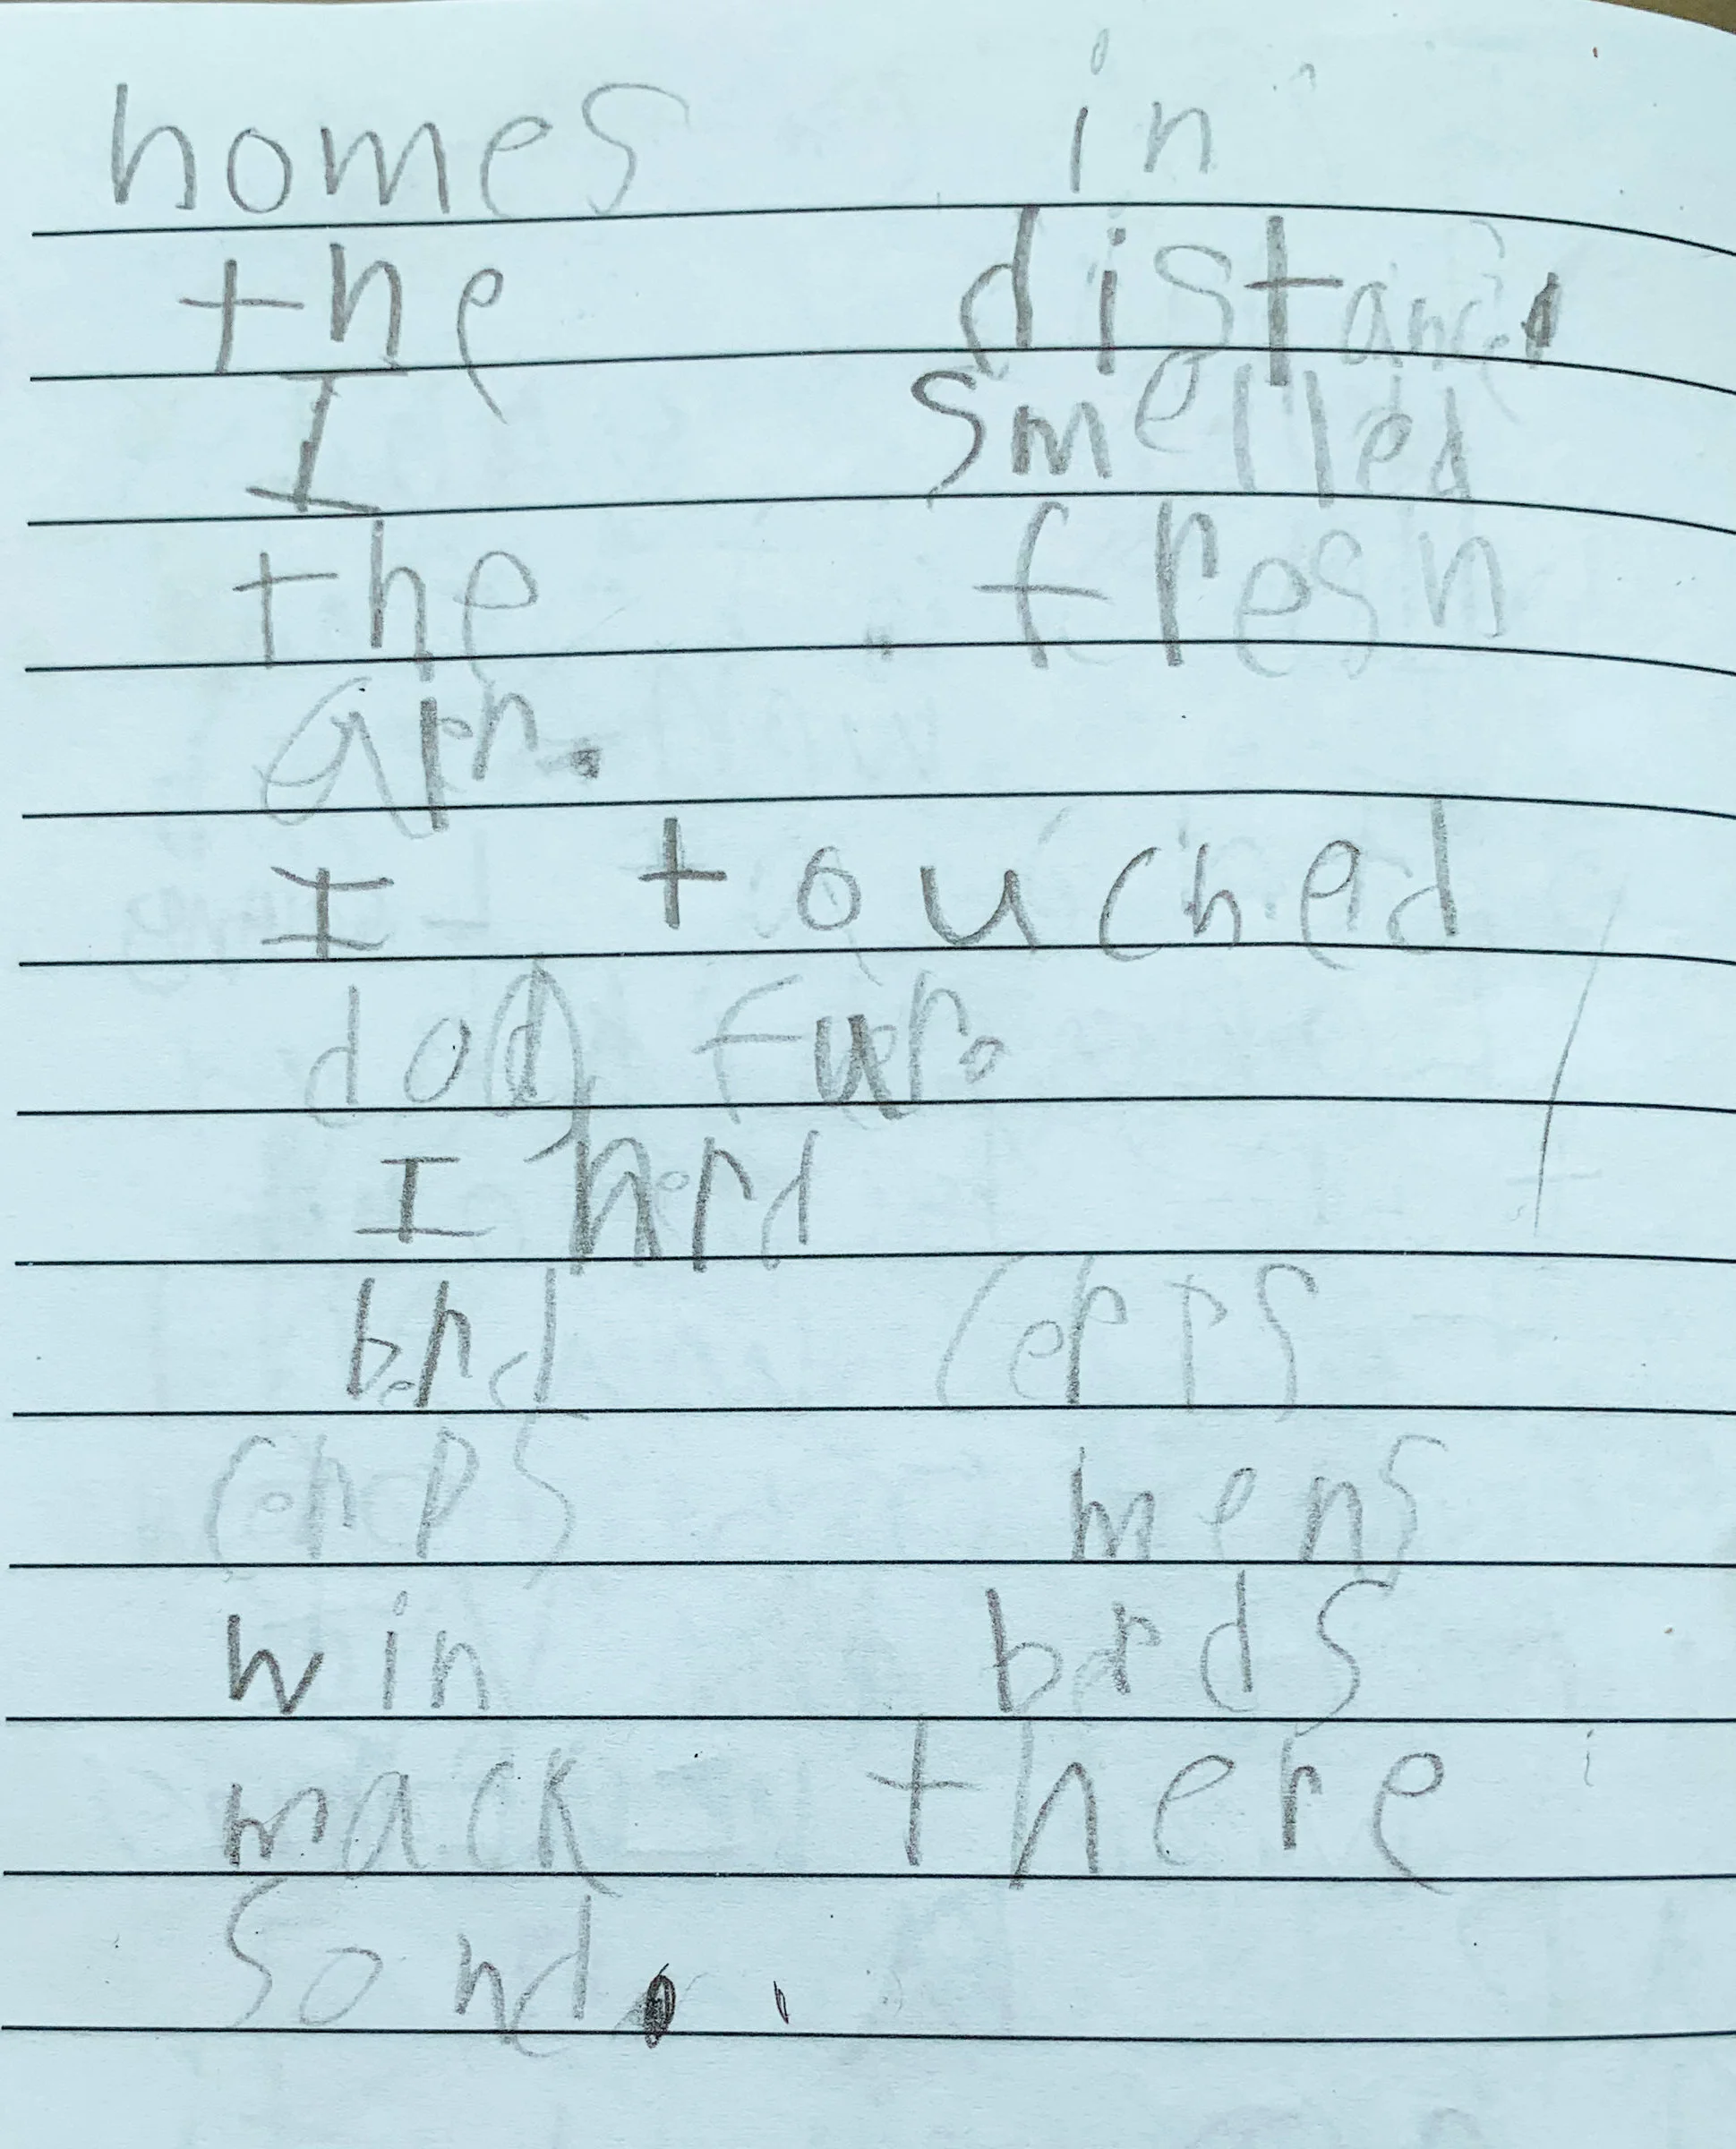 homes in
the distance.
I smelled
the fresh
air.
I touched
dog fur.
I herd
berd cerps
cerps mens
win berds
mack there
sond.